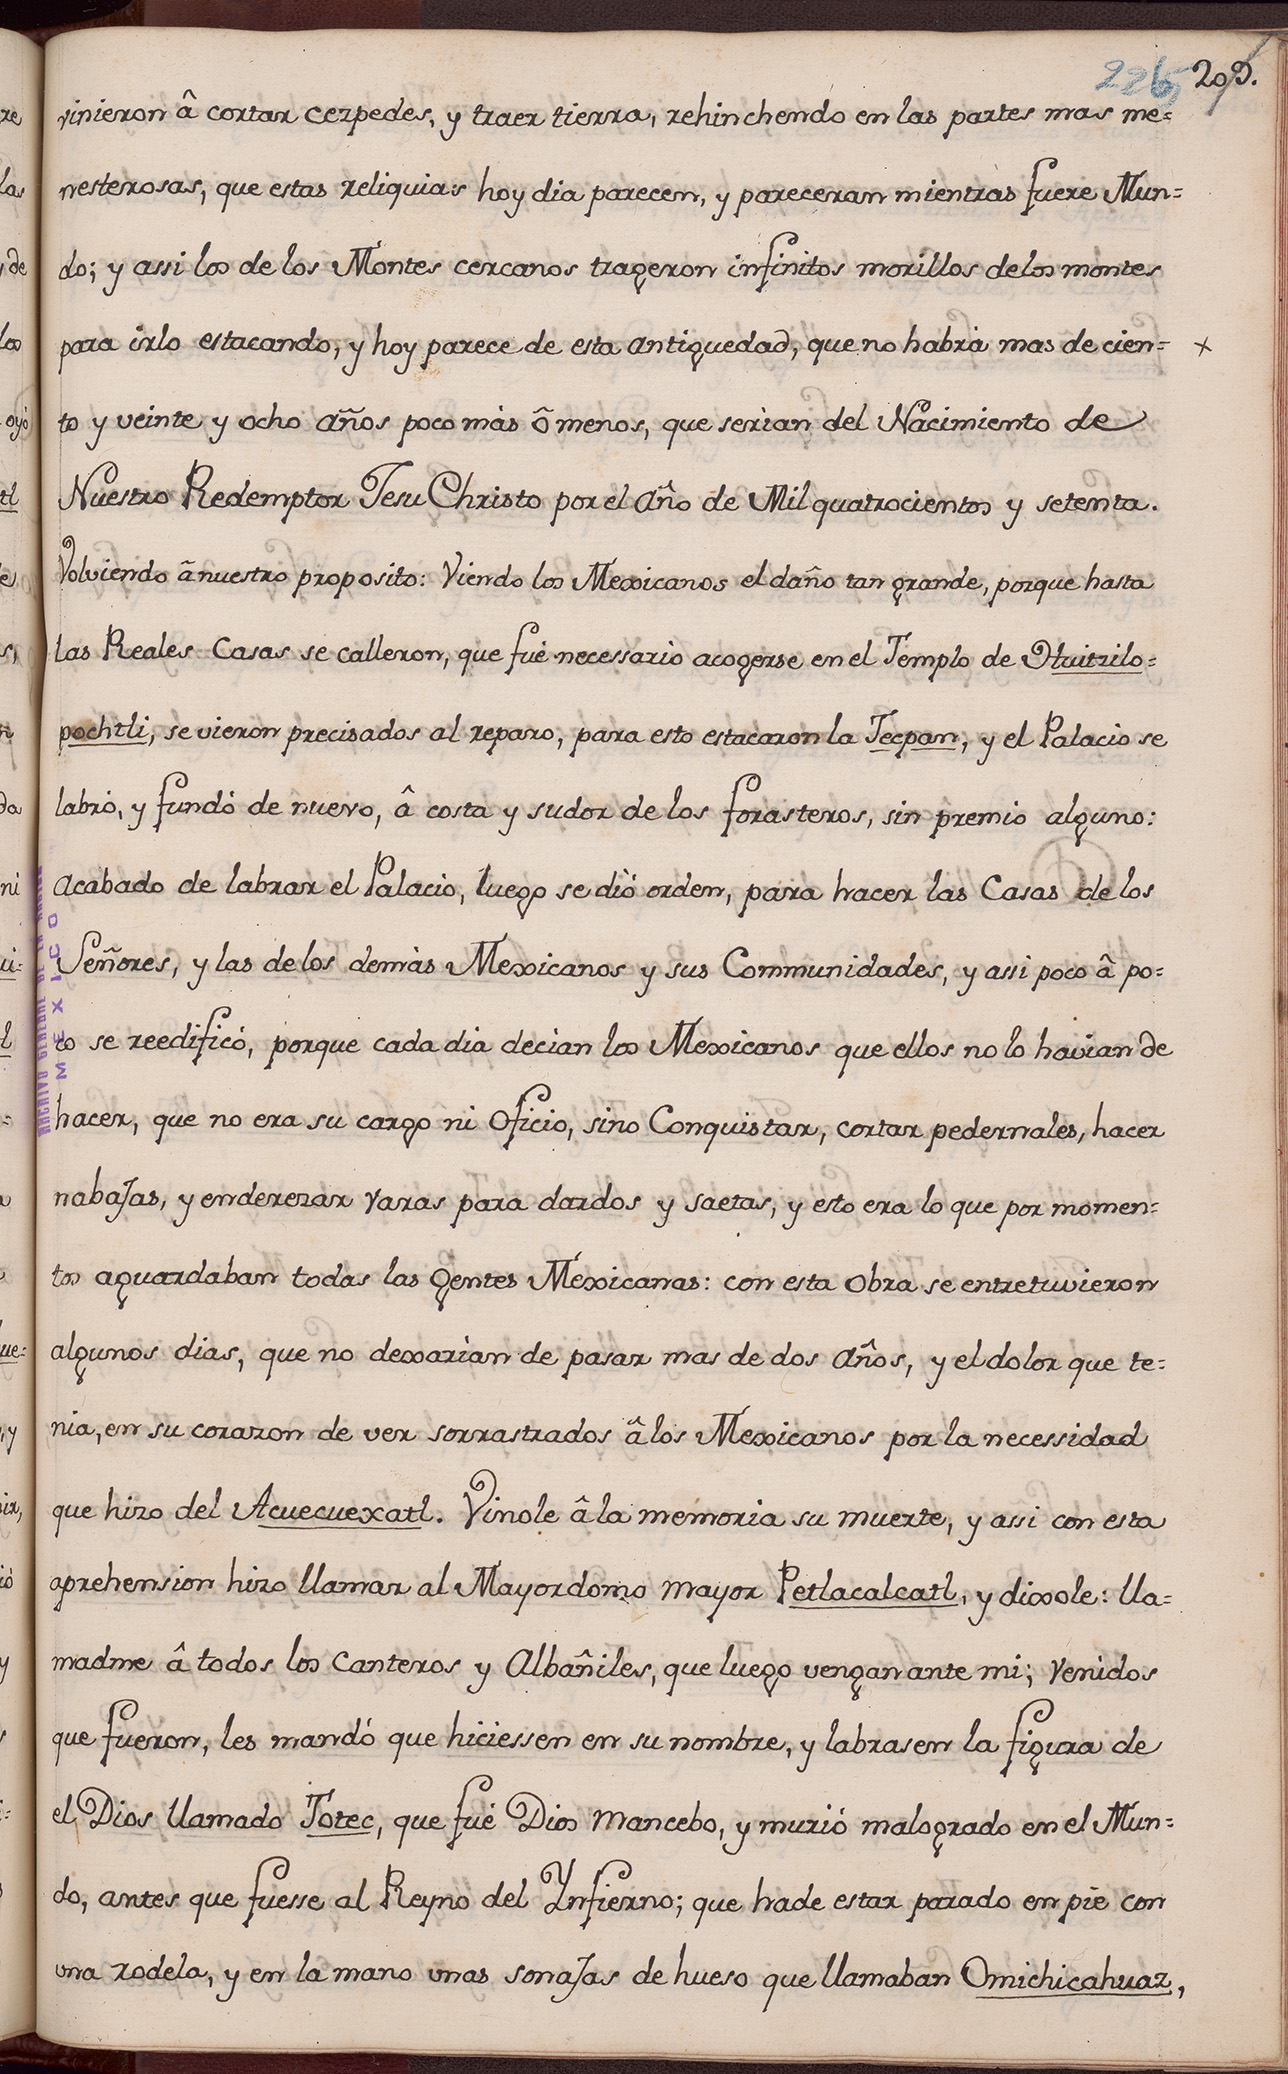 226 209.
vinieron â cortar cezpedes, y traer tierra, rehinchendo en las partes mas me=
nesterosas, que estas reliquias hoy dia parecen, y pareceran mientras fuere Mun=
do; y assi los de los Montes cercanos trageron infinitos morillos de los montes
para irlo estacando, y hoy parece de esta antiguedad, que no habrà mas de cien= x
to y veinte y ocho años poco màs ô menos, que serìan del Nacimiento de
Nuestro Redemptor Jesu Christo por el año de Mil quatrocientos y setenta.
Volviendo â nuestro proposito: Viendo los Mexicanos el daño tan grande, porque hasta
las Reales Casas se calleron, que fué necessario acogerse en el Templo de Huitzilo=
pochtli, se vieron precisados al reparo, para esto estacaron la Tecpan, y el Palacio se
labró, y fundó de nuevo, â costa y sudor de los forasteros, sin premio alguno:
acabado de labrar el Palacio, luego se dió orden, para hacer las Casas de los
Señores, y las de los demàs Mexicanos y sus Communidades, y assi poco â po=
co se reedificó, porque cada dia decian los Mexicanos que ellos no lo havian de
hacer, que no era su cargo ni Oficio, sino Conquistar, cortar pedernales, hacer
nabajas, y enderezar varas para dardos y saetas, y esto era lo que por momen=
tos aguardaban todas las gentes Mexicanas: con esta obra se entretuvieron
algunos dias, que no dexarìan de pasar mas de dos años, y el dolor que te=
nia, en su corazon de ver sorrastrados â los Mexicanos por la necessidad
que hizo del Acuecuexatl. Vinole â la memoria su muerte, y assi con esta
aprehension hizo llamar al Mayordomo mayor Petlacalcatl, y dixole: lla=
madme â todos los Canteros y Albañiles, que luego vengan ante mi; venidos
que fueron, les mandó que hiciessen en su nombre, y labrasen la figura de
el Dios llamado Totec, que fué Dios mancebo, y murió malogrado en el Mun=
do, antes que fuesse al Reyno del Ynfierno; que hade estar parado en pie con
una rodela, y en la mano unas sonajas de hueso que llamaban Omichicahuaz,
ARCHIVO GENERAL DE LA NACION
MEXICO